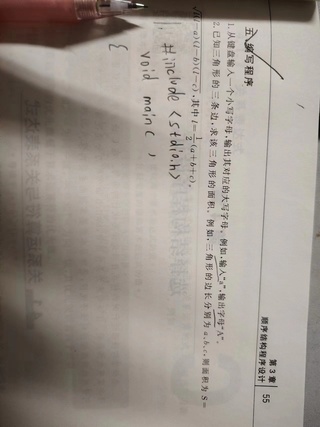 第3章
顺序结构程序设计 55
五、编写程序
1. 从键盘输入一个小写字母,输出其对应的大写字母。例如,输入"a",输出字母"A"。
2. 已知三角形的三条边,求该三角形的面积。例如,三角形的边长分别为a,b,c,则面积为S=
√l(l-a)(l-b)(l-c),其中l=1/2(a+b+c)。
#include <stdio.h>
void main(
{